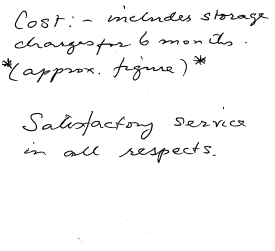 Cost:- includes storage
charges for 6 months.
*(approx. figure)*
Satisfactory service
in all respects.